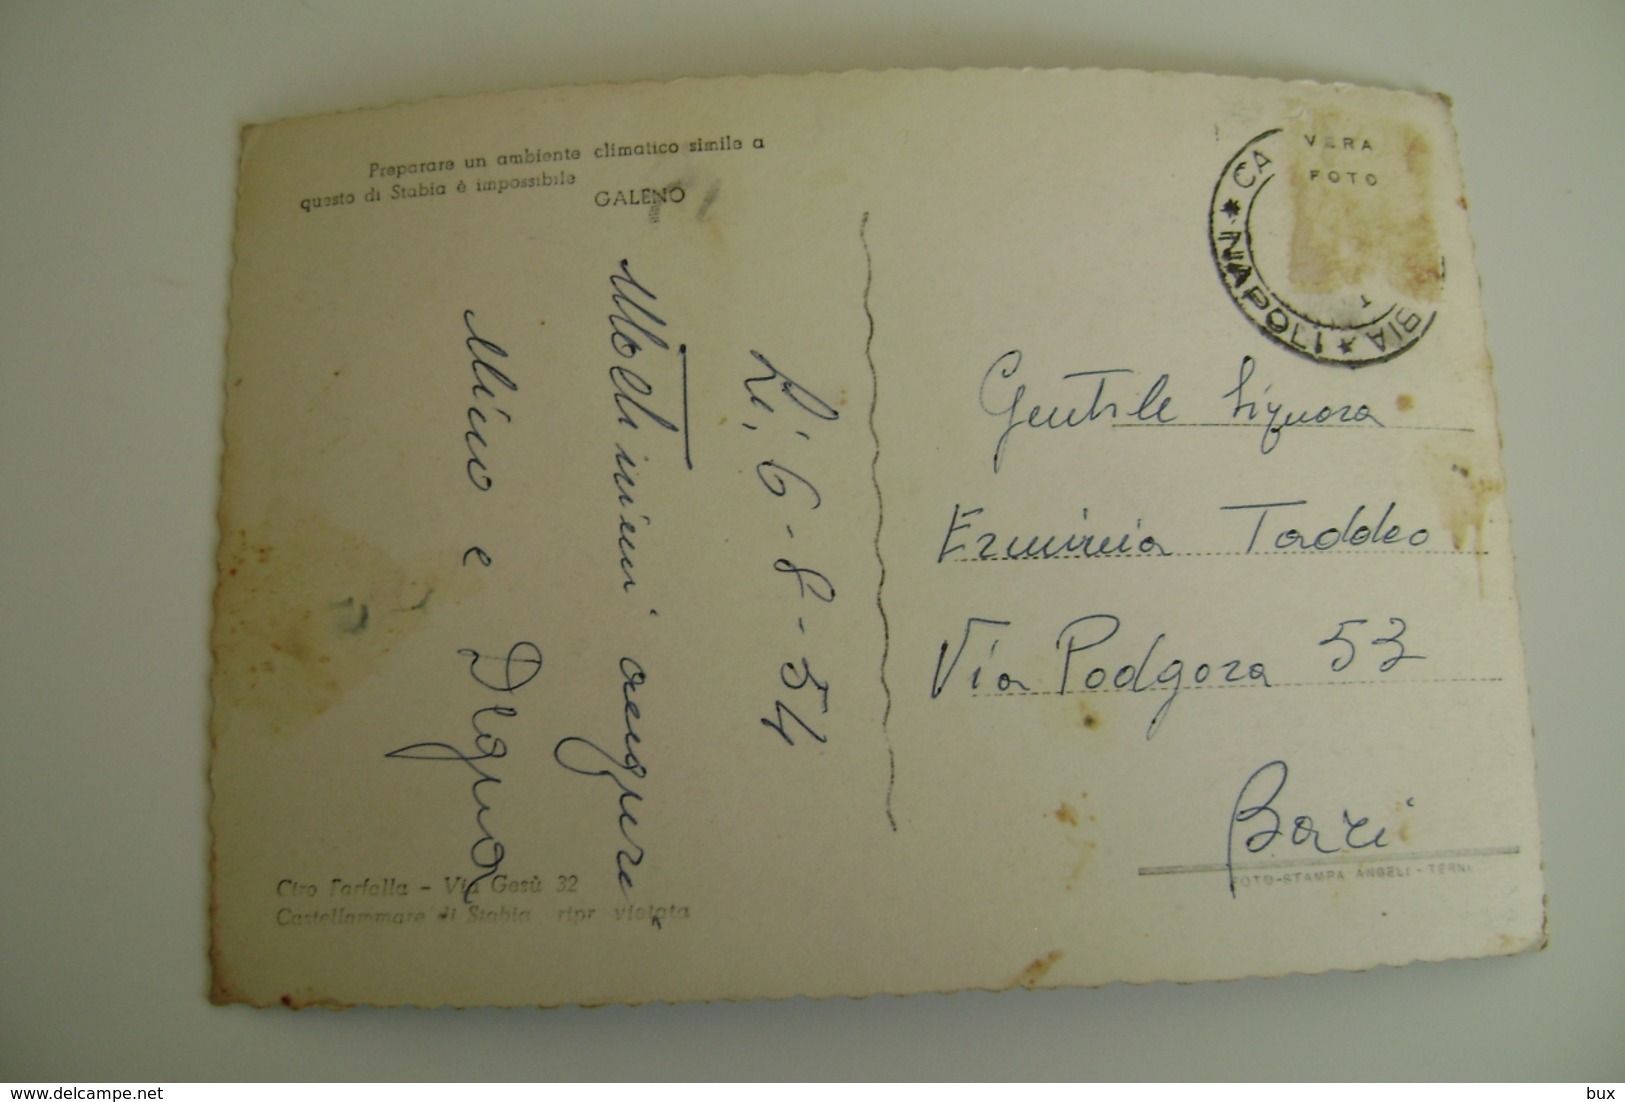 Preparare un ambiente climatico simile a
questo di Stabia è impossibile
GALENO
Lì, 6-8-54
Moltissimi auguri
Mico e
Ciro Farfalla - Via Gesù 32
Castellammare di Stabia ripr vietata
VERA
FOTO
CA BIA * NAPOLI *
Gentile Signora
Erminia Taddeo
Via Podgora 53
Bari
FOTO-STAMPA ANGELI - TERNI
delcampe.net
bux